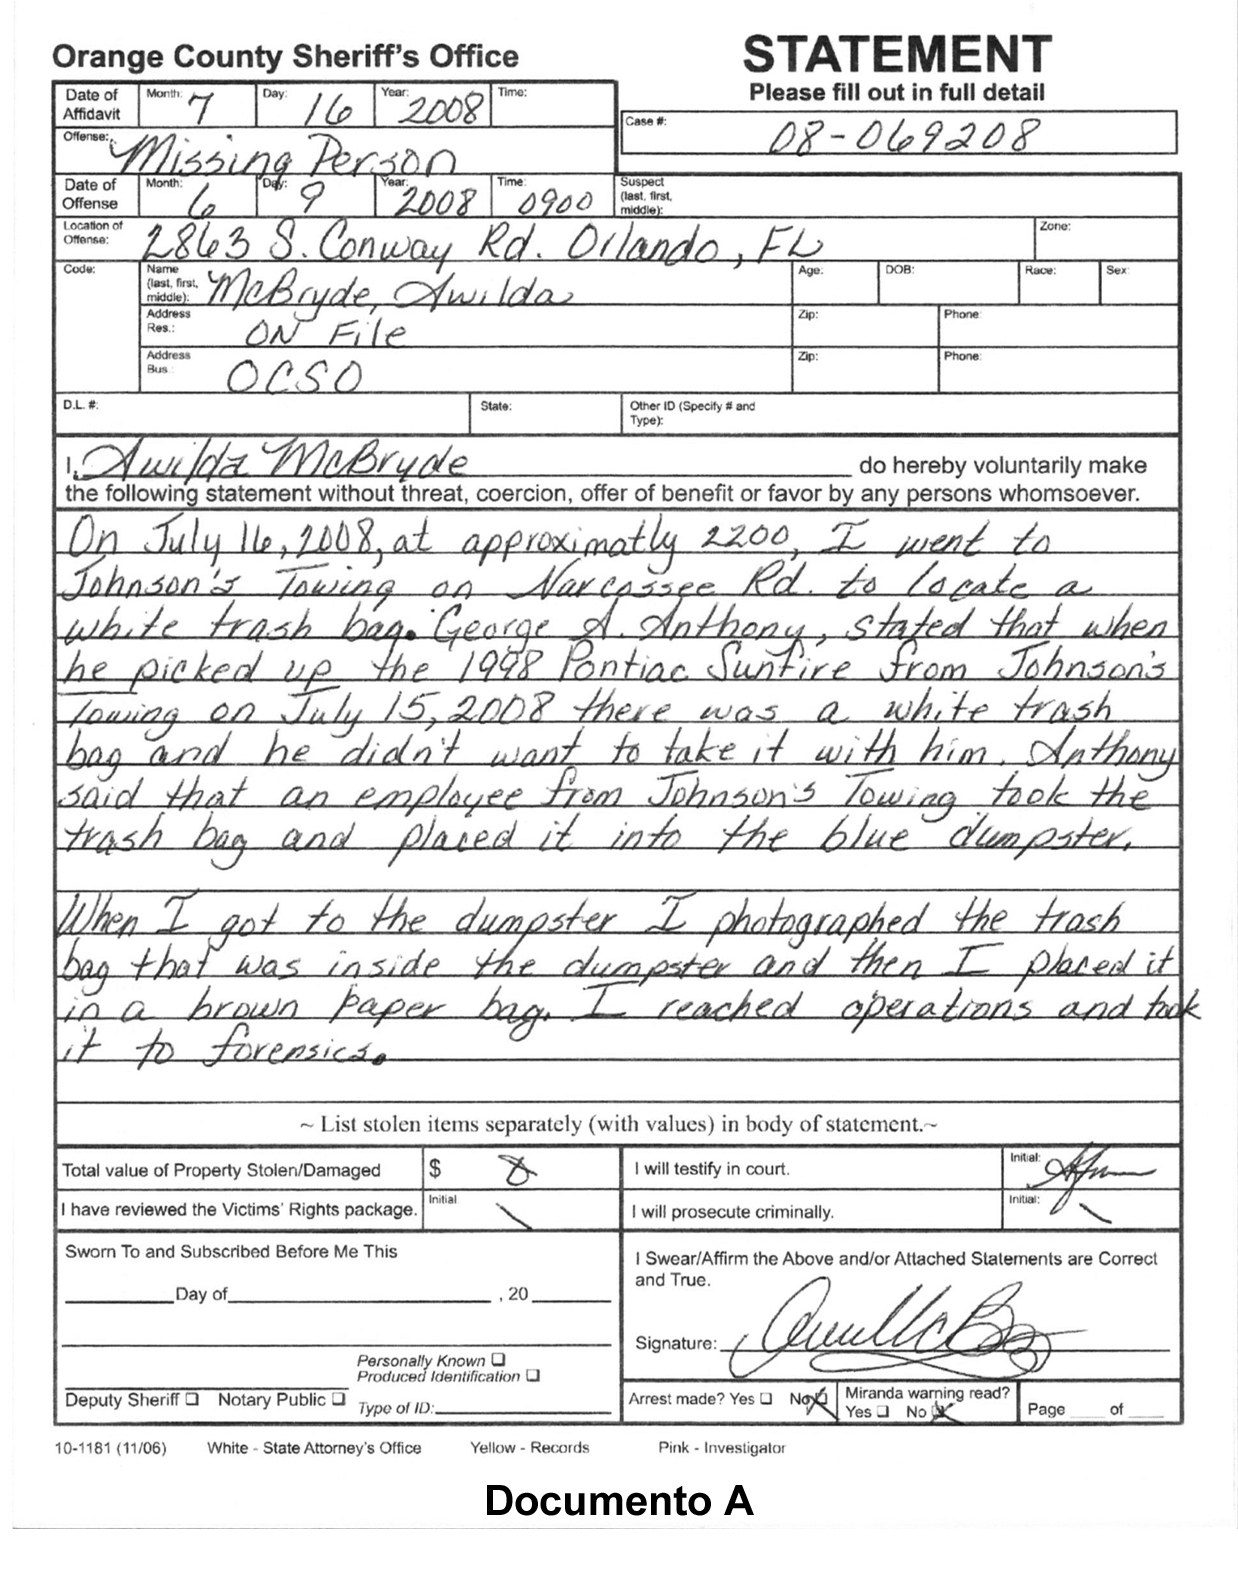 Orange County Sheriff's Office
STATEMENT
Please fill out in full detail
Date of Affidavit Month: 7 Day: 16 Year: 2008 Time:
Case #: 08-069208
Offense: Missing Person
Date of Offense Month: 6 Day: 9 Year: 2008 Time: 0900
Suspect (last, first, middle):
Location of Offense: 2863 S. Conway Rd. Orlando, FL
Zone:
Code: Name (last, first, middle): McBryde, Awilda
Age: DOB: Race: Sex:
Address Res.: ON File
Zip: Phone:
Address Bus.: OCSO
Zip: Phone:
D.L. #: State: Other ID (Specify # and Type):
I, Awilda McBryde do hereby voluntarily make
the following statement without threat, coercion, offer of benefit or favor by any persons whomsoever.
On July 16, 2008, at approximatly 2200, I went to
Johnson's Towing on Narcossee Rd. to locate a
white trash bag. George A. Anthony, stated that when
he picked up the 1998 Pontiac Sunfire from Johnson's
Towing on July 15, 2008 there was a white trash
bag and he didn't want to take it with him. Anthony
said that an employee from Johnson's Towing took the
trash bag and placed it into the blue dumpster.
When I got to the dumpster I photographed the trash
bag that was inside the dumpster and then I placed it
in a brown paper bag. I reached operations and took
it to forensics.
~ List stolen items separately (with values) in body of statement.~
Total value of Property Stolen/Damaged $
I will testify in court. Initial:
I have reviewed the Victims' Rights package. Initial
I will prosecute criminally. Initial:
Sworn To and Subscribed Before Me This
Day of , 20
I Swear/Affirm the Above and/or Attached Statements are Correct
and True.
Signature:
Personally Known
Produced Identification
Deputy Sheriff Notary Public Type of ID:
Arrest made? Yes No
Miranda warning read?
Yes No
Page of
10-1181 (11/06) White - State Attorney's Office Yellow - Records Pink - Investigator
Documento A